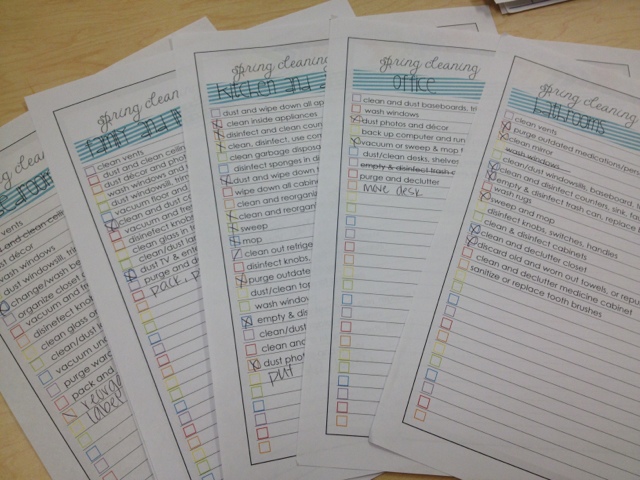 spring
vents
dust décor
wash windows
dust windowsill,
change/wash be
organize closet
vacuum and
disinfect knobs
clean glass or
clean/dust
vacuum
purge
pack and
label
spring cleanin
family and
clean vents
dust and clean ceiling
dust décor and photos
wash windows
dust windowsills, trim
vacuum floor and
clean and dust
vacuum and
disinfect knobs
clean glass
clean/dust
dust tv & ent
purge and
pack,
spring cleaning
kitchen and
dust and wipe down all ap
clean inside appliances
disinfect and clean coun
clean, disinfect, use com
clean garbage dispos
disinfect sponges in di
dust and wipe down
wipe down all cabine
clean and reorgan
clean and reorgani
sweep
mop
clean out refrige
disinfect knobs,
purge outdate
dust/clean top
wash window
empty & di
clean/dust
clean and
dust phot
put
spring cleaning
office
clean and dust baseboards, tri
wash windows
dust photos and décor
back up computer and run
vacuum or sweep & mop f
dust/clean desks, shelves
empty & disinfect trash c
purge and declutter
move desk
spring cleaning
bathrooms
clean vents
purge outdated medications/pers
clean mirror
wash windows
clean/dust windowsills, baseboard, t
clean and disinfect counters, sink, t
empty & disinfect trash can, replace
wash rugs
sweep and mop
disinfect knobs, switches, handles
clean & disinfect cabinets
clean and declutter closet
discard old and worn out towels, or repu
clean and declutter medicine cabinet
sanitize or replace tooth brushes